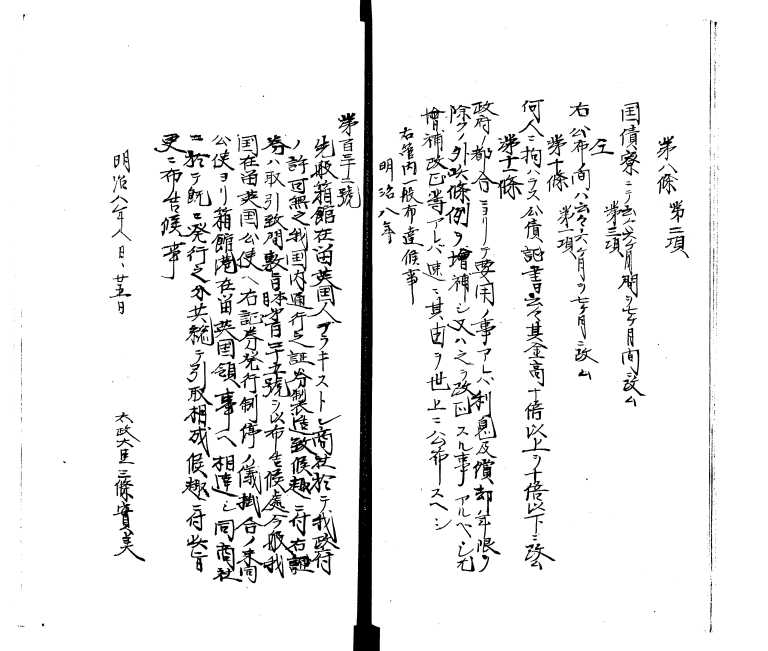 第八條 第二項
国債寮ニテ云々六ケ月間ヲ七ケ月間ニ改ム
仝 第三項
右公布ノ間ハ云々六ケ月ヲ七ケ月ニ改ム
第十條 第一項
何人ニ拘ハラス公債証書云々其金高十倍以上ヲ十倍以下ニ改ム
第十一條
政府ノ都合ニヨリテ要用ノ事アレバ利息及償却年限ヲ
除クノ外此條例ヲ増補シ又ハ之ヲ改正スル事アルヘシ尤
増補改正等アレハ速ニ其由ヲ世上ニ公布スヘシ
右管内一般布達候事
明治八年
第百三十一號
先般箱館在留英国人ブラキストン商社於テ我政府
ノ許可無之我国内通行之証券製造致候趣ニ付右証
券ハ取引致間敷旨本年第百二十五號ヲ以布告候處今般我
国在留英国公使ヘ右証券発行制停ノ儀掛合ノ末同
公使ヨリ箱館港在留英国領事ヘ相達シ同商社
ニ於テ既ニ発行之分共総テ引取相成候趣ニ付此旨
更ニ布告候事
明治八年八月廿五日
太政大臣三條實美